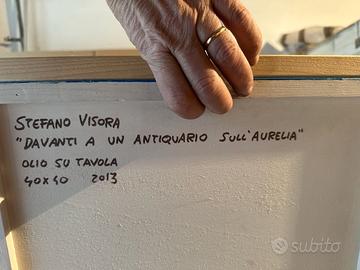 STEFANO VISORA
"DAVANTI A UN ANTIQUARIO SULL'AURELIA"
OLIO SU TAVOLA
40x40 2013
subito